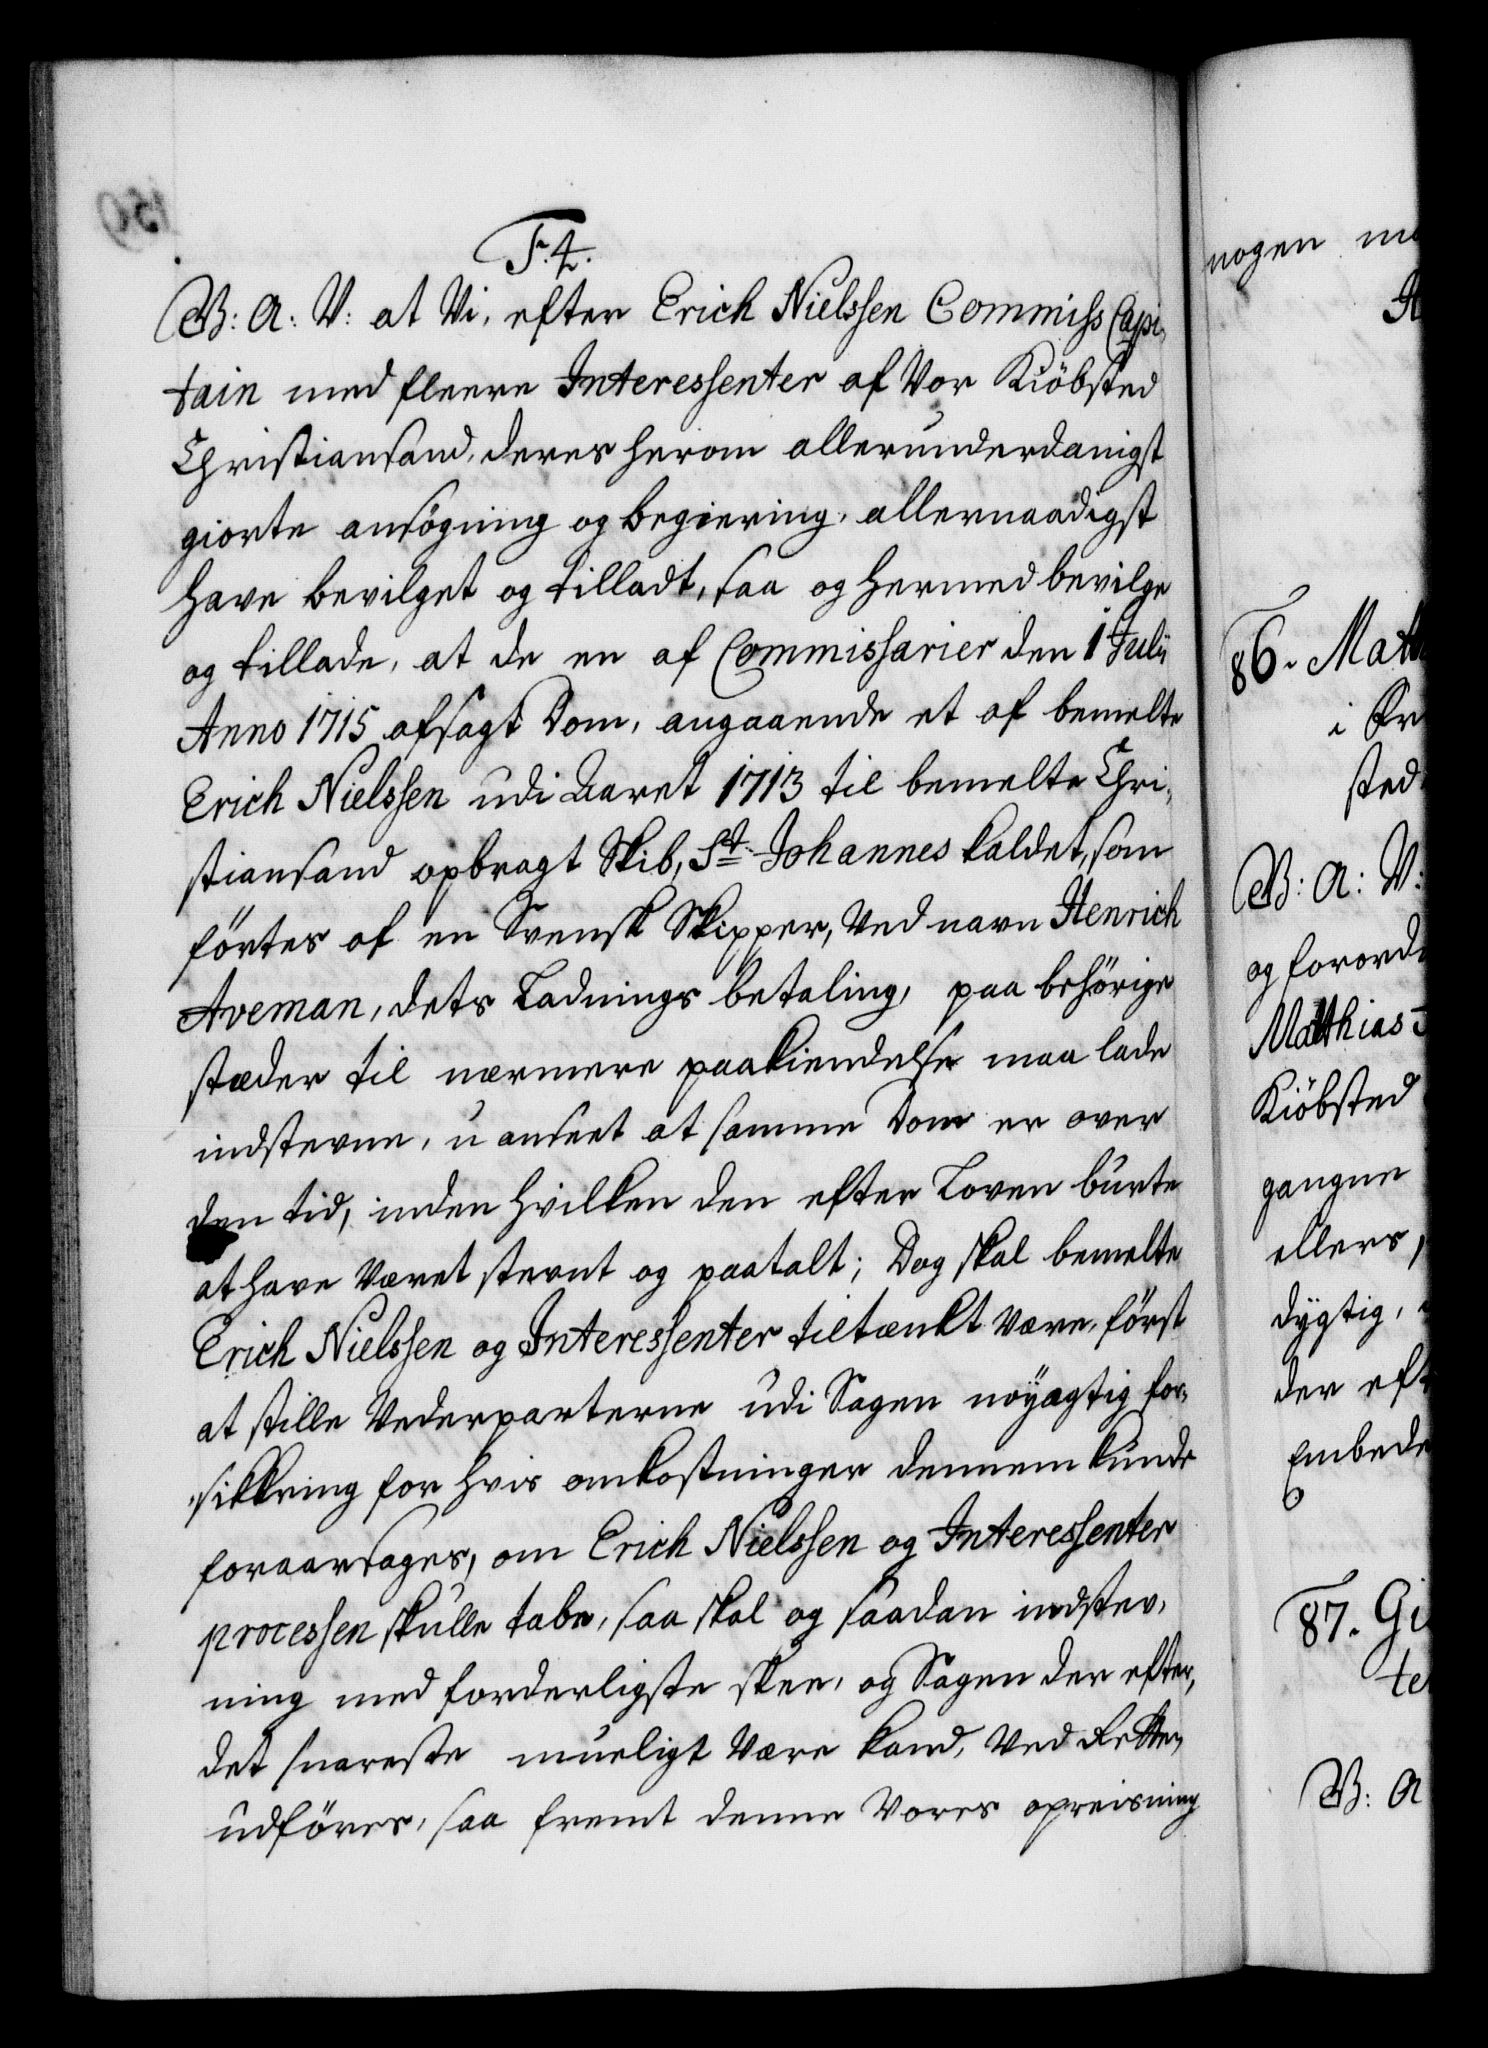 F. 4.
G: A: V: at Vi, efter Erich Nielssen Commiss Capi-
tain med fleere Interessenter af Vor Kiöbsted
Christiansand, deres herom allerunderdanigst
giorte ansøgning og begiering, allernaadigst
have bevilget og tilladt, saa og hermed bevilge
og tillade, at de en af Commissarier den 1 Julij
Anno 1715 afsagt Dom, angaaende et af bemelte
Erich Nielssen udi Aaret 1713 til bemelte Chri-
stiansand opbragt Skib, St. Johannes kaldet, som
förtes af en Svensk Skipper, Ved navn Henrich
Aveman, dets Ladnings betaling, paa behörige
stæder til nærmere paakiendelse maa lade
indstevne, uanseet at samme Dom er over
den tid, inden hvilken den efter Loven burte
at have Været stevnt og paatalt; Dog skal bemelte
Erich Nielssen og Interessenter tiltænkt være, först
at stille Vederparterne udi Sagen nöyagtig for-
sikkring for hvis omkostninger dennem kunde
foraarsages, om Erich Nielssen og Interessenter
processen skulle tabe, saa skal og saadan indstev-
ning med forderligste skee, og Sagen der efter,
det snareste mueligt Være kand, Ved Retten
udföres, saa fremt denne Vores opreisning
150
nogen
86. Matt
i
sted
G: A: V:
og forord
Matthias
Kiöbsted
gangne
ellers,
dygtig,
der eft
Embede
87. Gi
te
G: A